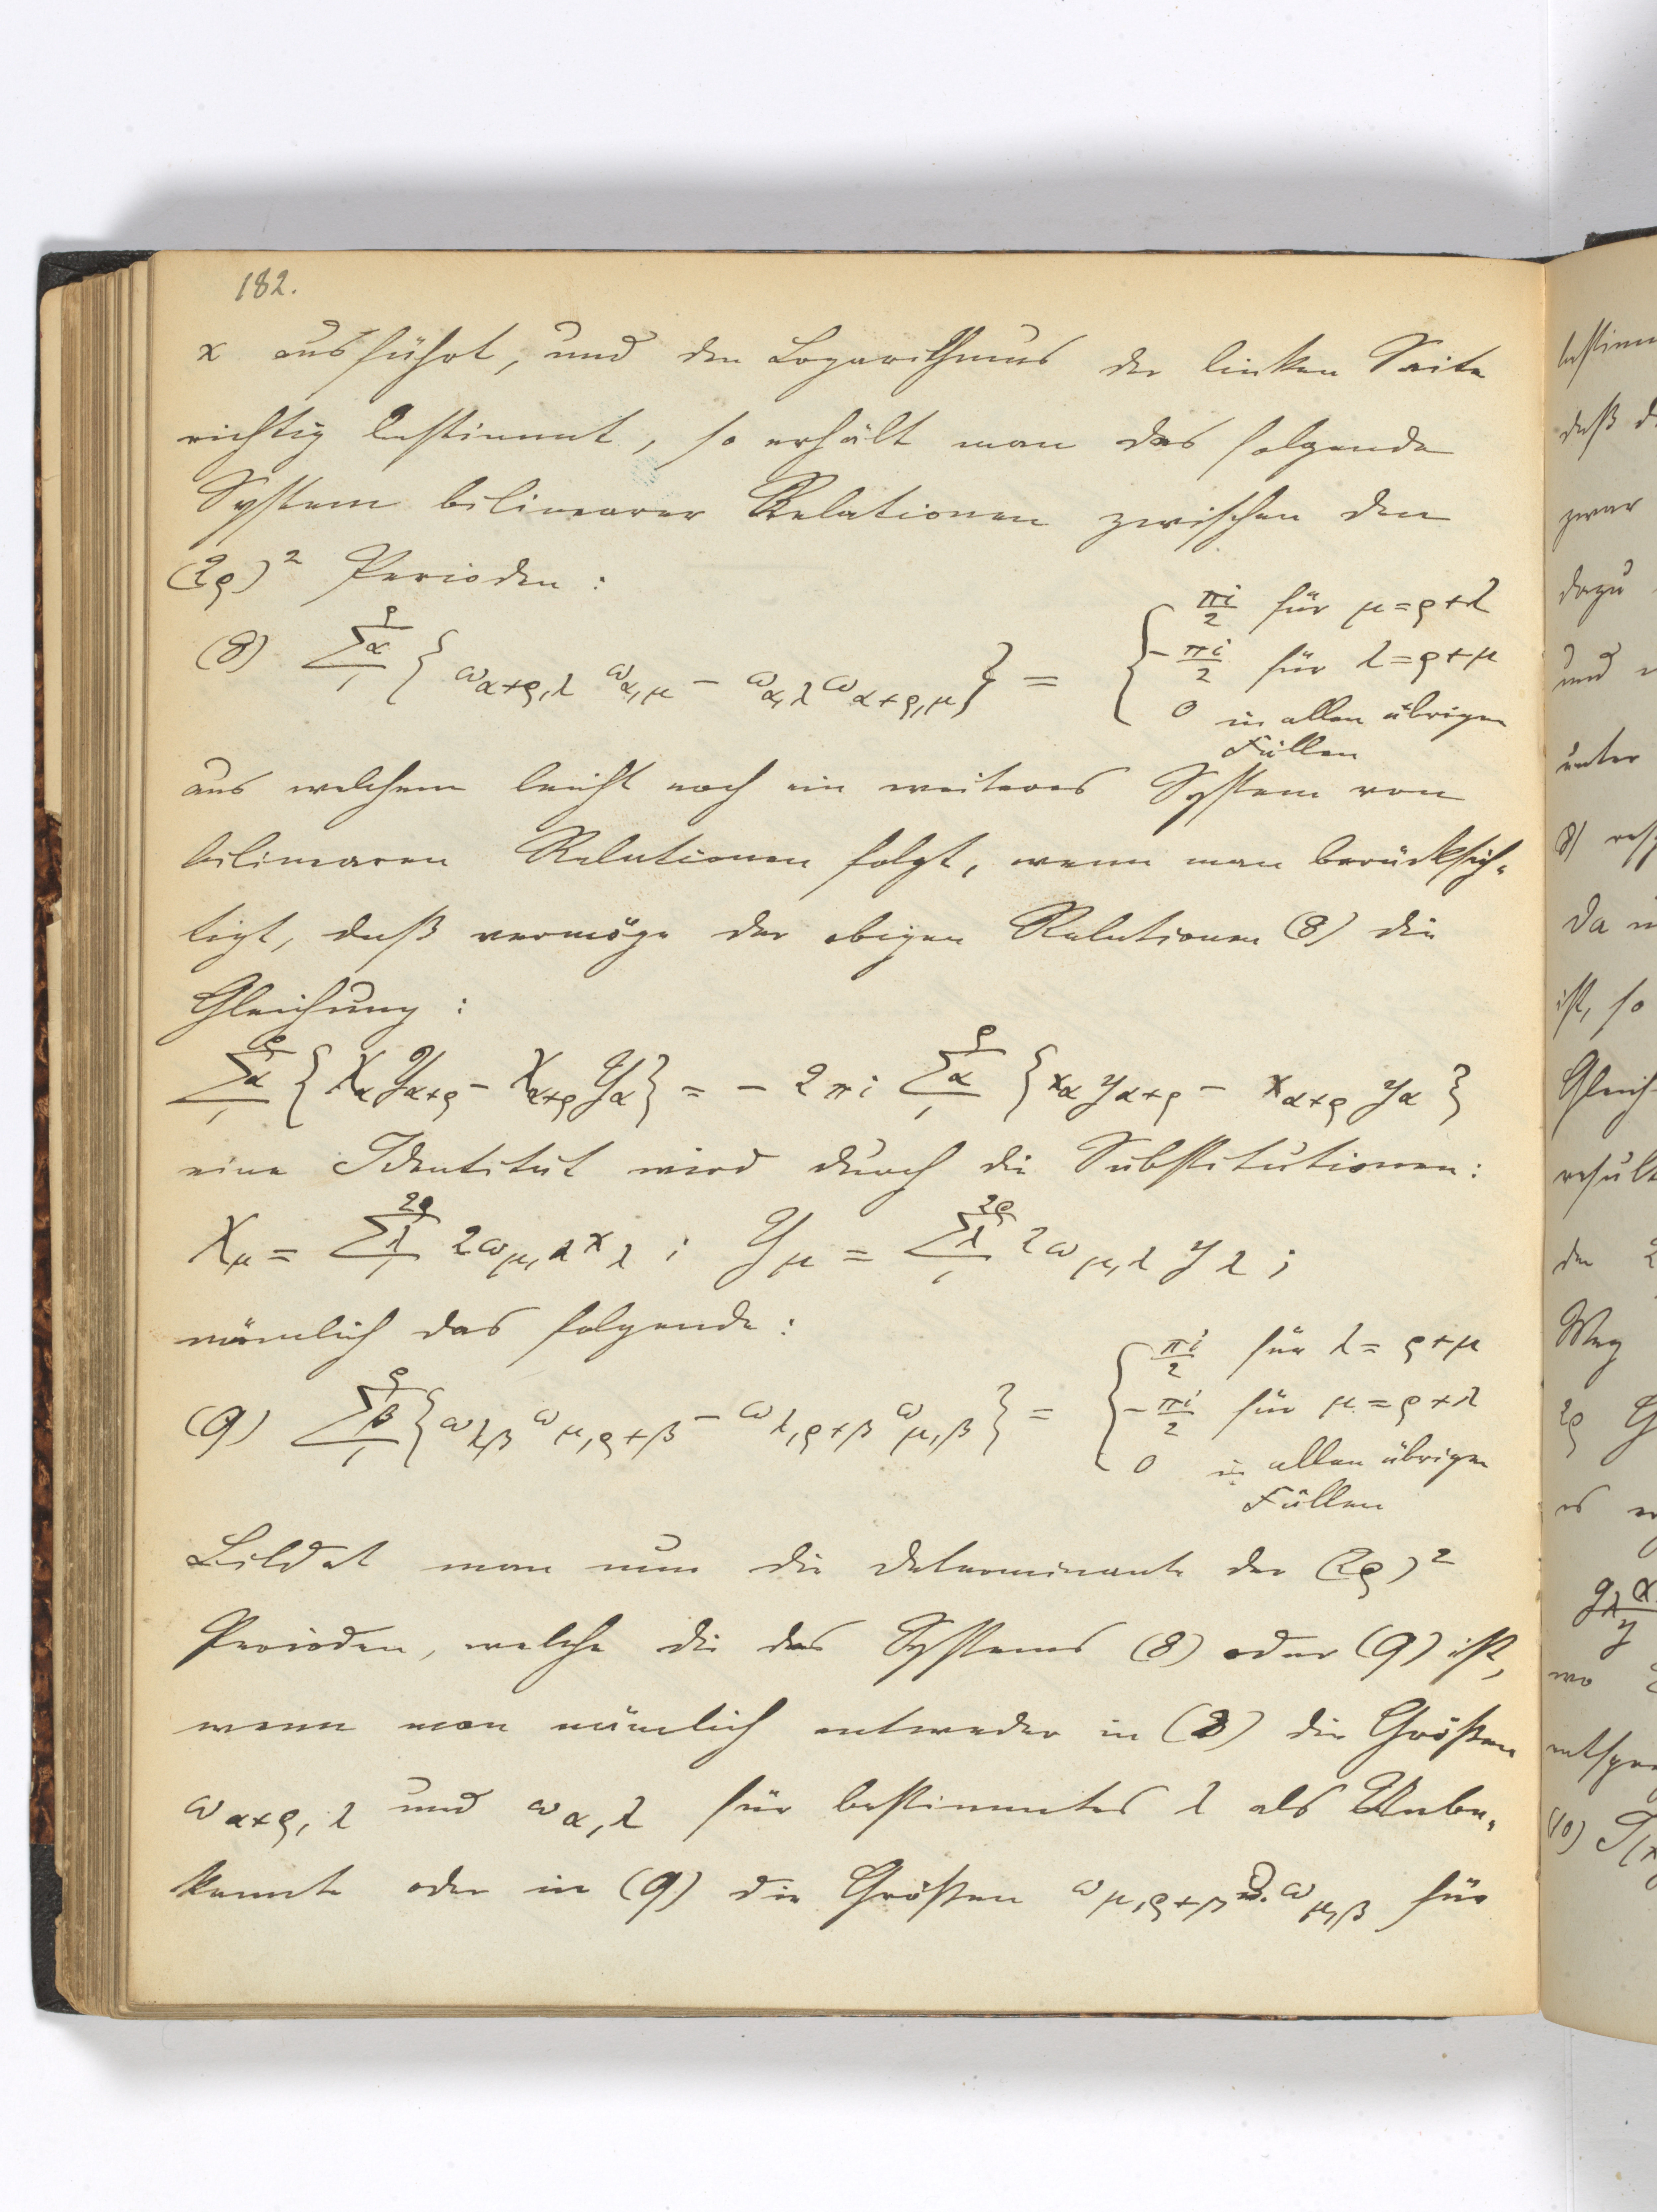 182.
x ausführt, und den Logarithmus der linken Seite
richtig bestimmt, so erhält man das folgende
System bilinearer Relationen zwischen den
(2ρ)² Perioden:
(8) ∑_α₁^ρ { ω_{α+ρ,λ} ω_{α,μ} − ω_{α,λ} ω_{α+ρ,μ} } = { πi/2 für μ = ρ+λ
− πi/2 für λ = ρ+μ
0 in allen übrigen
Fällen
aus welchem leicht noch ein weiteres System von
bilinearen Relationen folgt, wenn man berücksich-
tigt, daß vermöge der obigen Relationen (8) die
Gleichung:
∑_α₁^ρ { X_α Y_{α+ρ} − X_{α+ρ} Y_α } = − 2πi ∑_α₁^ρ { x_α y_{α+ρ} − x_{α+ρ} y_α }
eine Identität wird durch die Substitutionen:
X_μ = ∑_λ₁^{2ρ} 2ω_{μ,λ} x_λ ; Y_μ = ∑_λ₁^{2ρ} 2ω_{μ,λ} y_λ ;
nämlich das folgende:
(9) ∑_β₁^ρ { ω_{λ,β} ω_{μ,ρ+β} − ω_{λ,ρ+β} ω_{μ,β} } = { πi/2 für λ = ρ+μ
− πi/2 für μ = ρ+λ
0 in allen übrigen
Fällen
Bildet man nun die Determinante der (2ρ)²
Perioden, welche die des Systems (8) oder (9) ist,
wenn man nämlich entweder in (8) die Größen
ω_{α+ρ,λ} und ω_{α,λ} für bestimmtes λ als Unbe-
kannte oder in (9) die Größen ω_{μ,ρ+β} u. ω_{μ,β} für
bestimm
daß d
zwar
dazu
und
unter
Da
ist, so
Gleich
result
den
Weg
2ρ G
es
wo
entspre
(10)